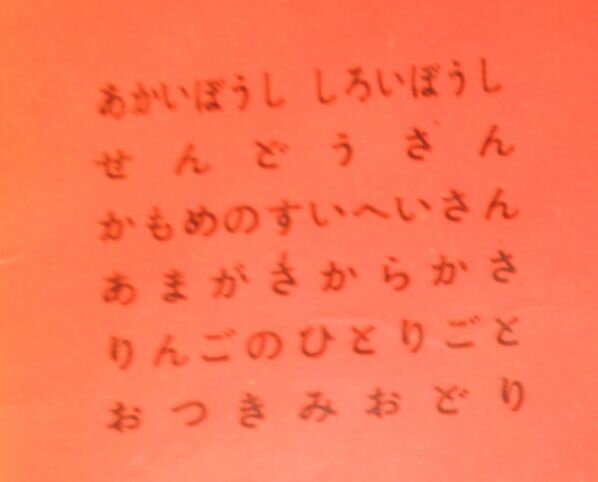 あかいぼうし しろいぼうし
せんどうさん
かもめのすいへいさん
あまがさからかさ
りんごのひとりごと
おつきみおどり